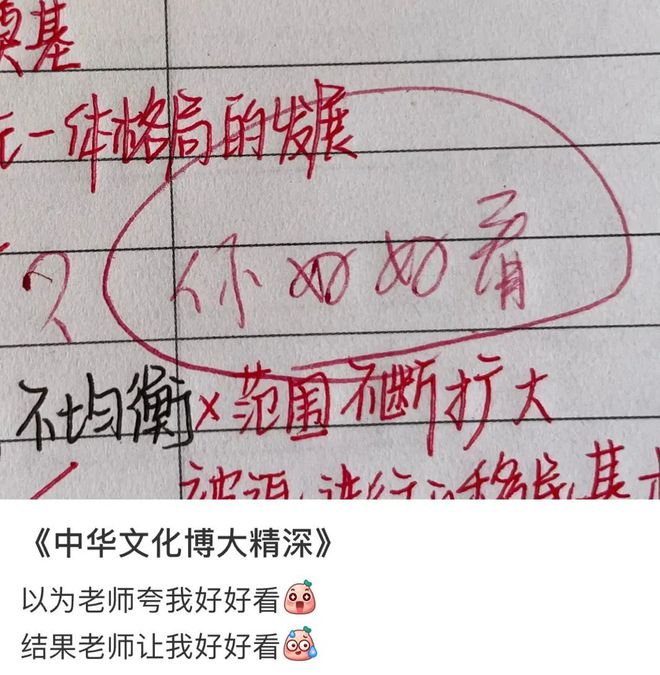 奠基
元一体格局的发展
你好好看
不均衡×范围不断扩大
《中华文化博大精深》
以为老师夸我好好看
结果老师让我好好看